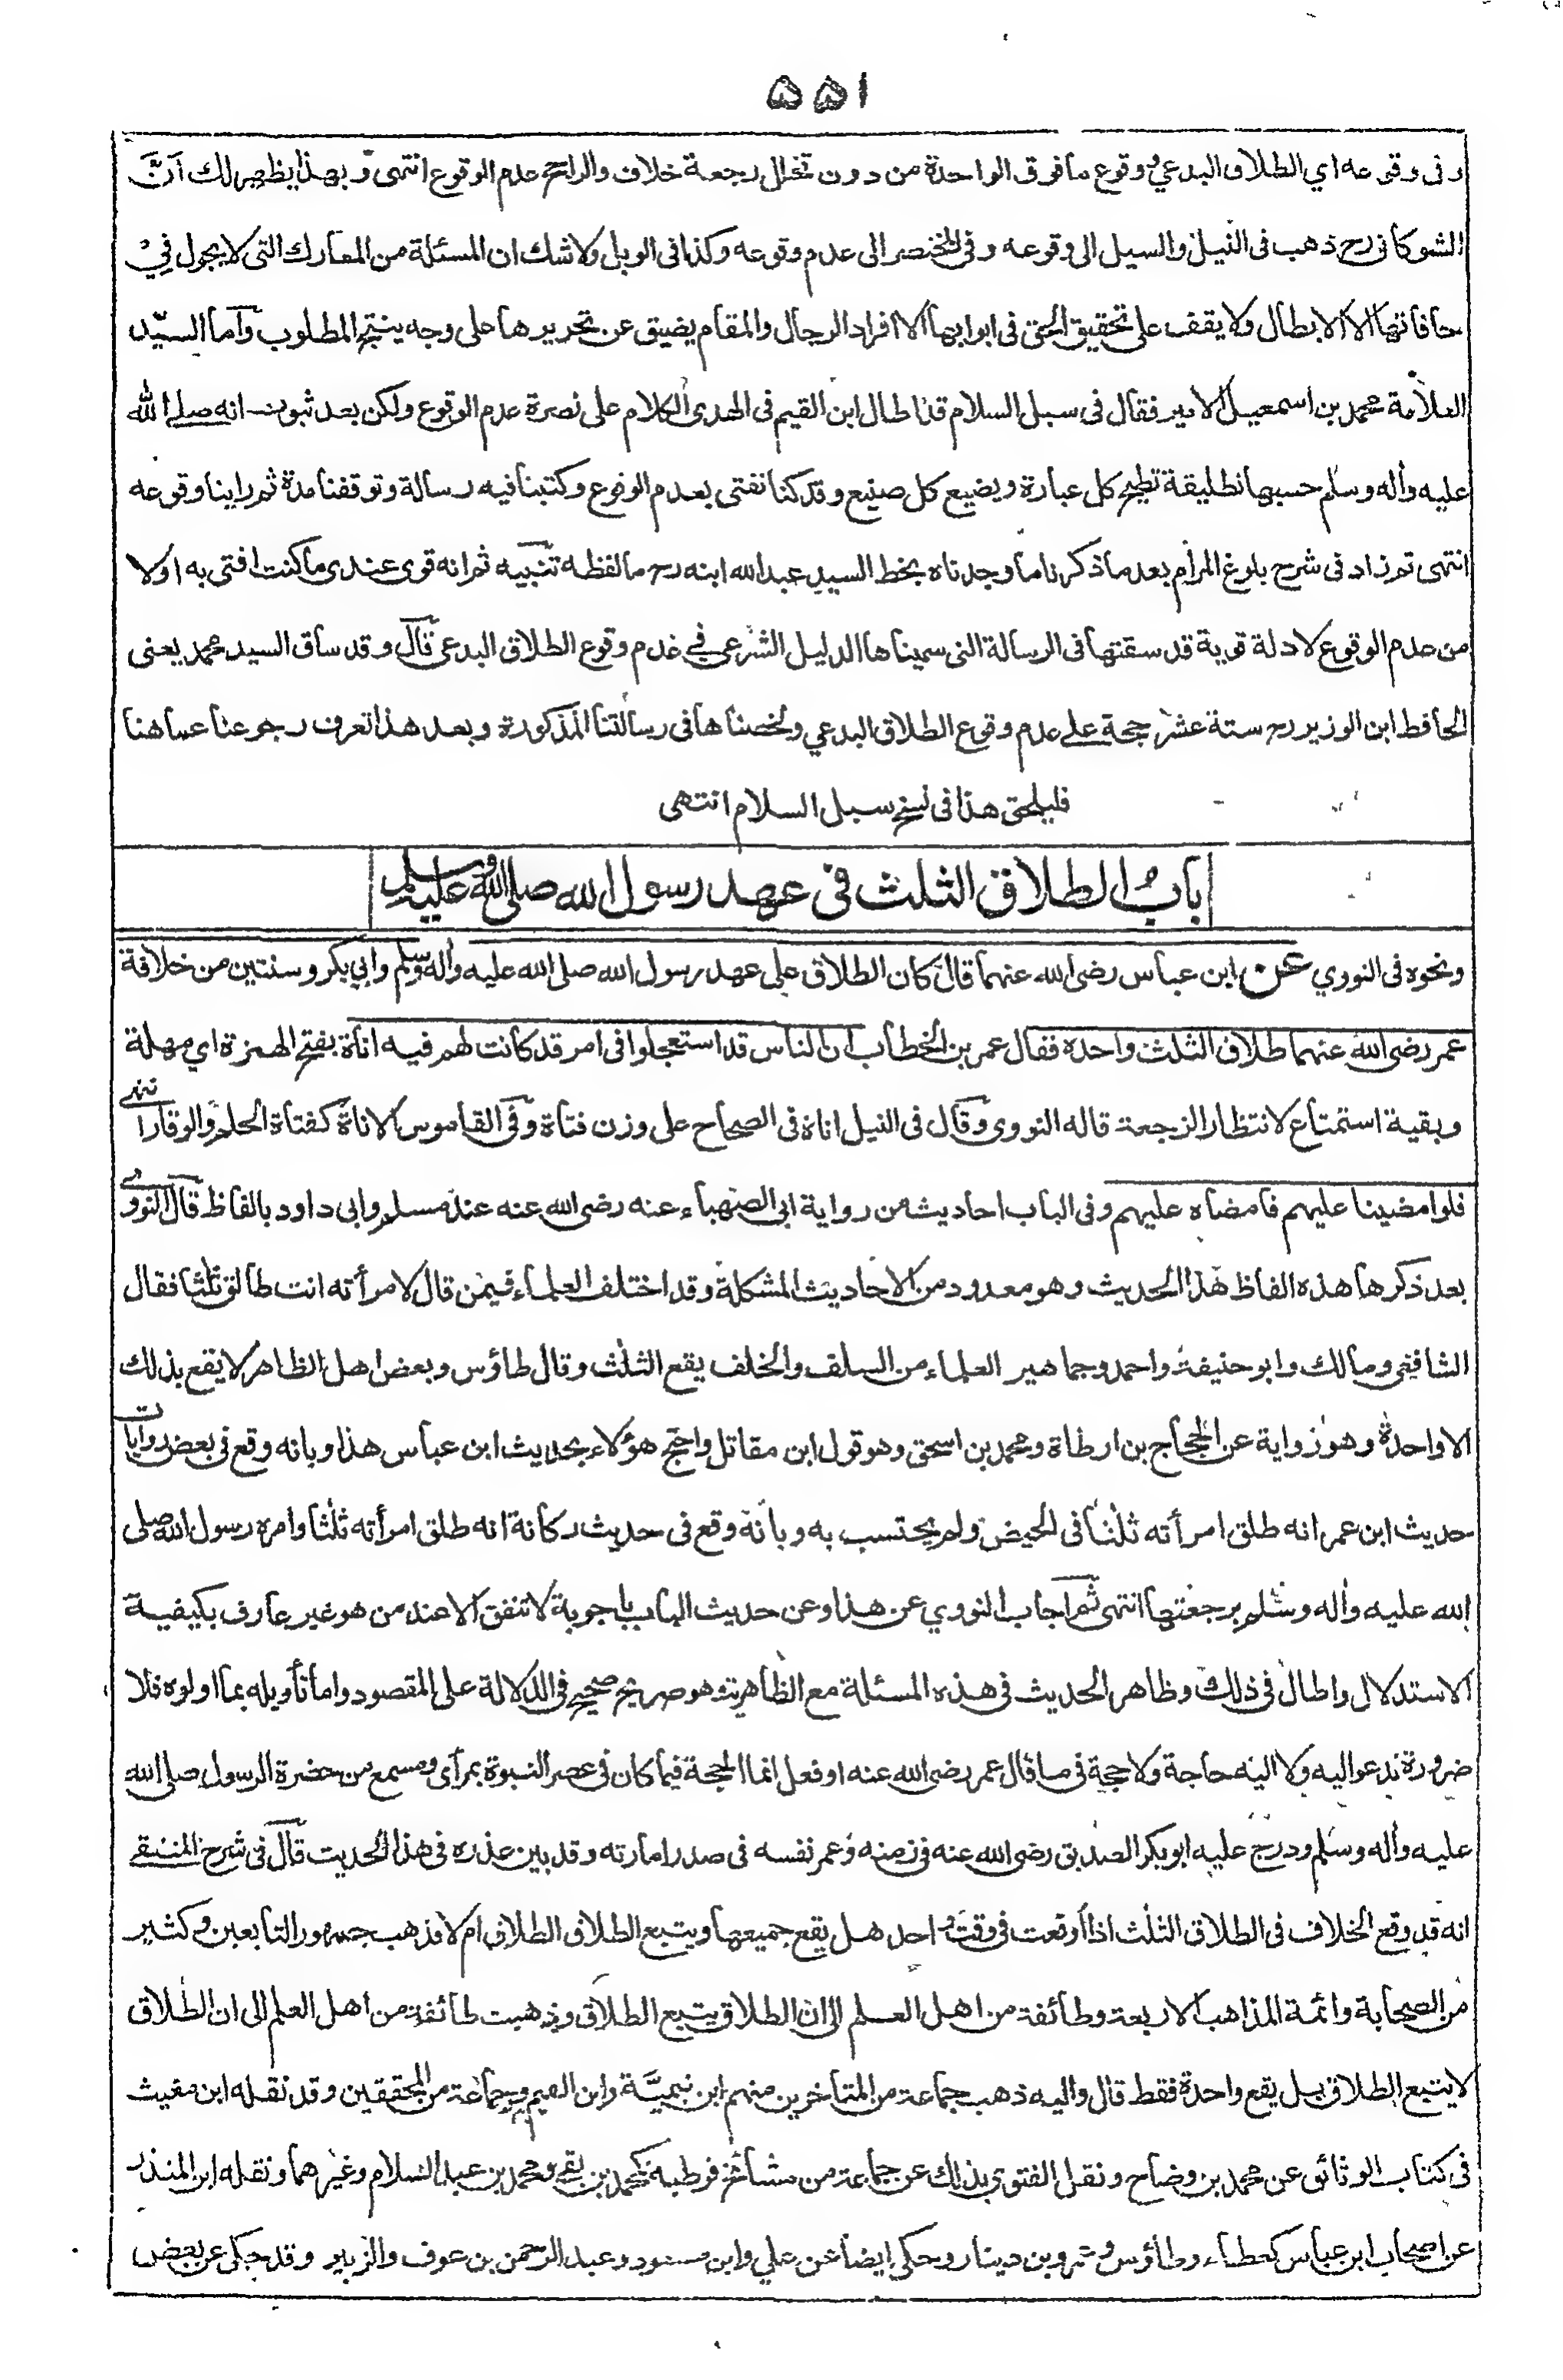 ۵۵۱
وفى وقوعه اي الطلاق البدعي وقوع ما فوق الواحدة من دون تخلل رجعة خلاف والراجح عدم الوقوع انتهى وبهذا يظهر لك انَّ
الشوكانى رح ذهب فى النيل والسيل الى وقوعه وفى المختصر الى عدم وقوعه وكذا فى الوبل ولا شك ان المسئلة من المعارك التى لا يجول فِيْ
حافاتها الا الابطال ولا يقف على تحقيق الحق فى ابوابها الا افراد الرجال والمقام يضيق عن تحريرها على وجه ينتج المطلوب وأما السيّد
العلامة محمد بن اسمعيل الامير فقال فى سبل السلام قد اطال ابن القيم فى الهدى الكلام على نصرة عدم الوقوع ولكن بعد ثبوت انه صلے الله
عليه واله وسلم حسبها تطليقة تطيح كل عبارة ويضيع كل صنيع وقد كنا نفتى بعدم الوقوع وكتبنا فيه رسالة وتوقفنا مدة ثم راينا وقوعه
انتهى ثم زاد فى شرح بلوغ المرام بعد ما ذكرنا ما وجدناه بخط السيد عبد الله ابنه رح ما لفظه تنبيه ثم انه قوى عندى ما كنت افتى به اولا
من عدم الوقوع لادلة قوية قد سقتها فى الرسالة التى سميناها الدليل الشرعي فے عدم وقوع الطلاق البدعى قال وقد ساق السيد محمد يعنى
الحافظ ابن الوزير رح ستة عشر حجة علے عدم وقوع الطلاق البدعي ولخصناها فى رسالتنا المذكورة وبعد هذا تعرف رجوعنا عما هنا
فليلحق هذا فى نسخ سبل السلام انتهى
بابُ الطلاق الثلث فى عهد رسول الله صلى الله عليه وسلم
ونحوه فى النووي عن ابن عباس رضى الله عنهما قال كان الطلاق على عهد رسول الله صلى الله عليه واله وسلم وابي بكر وسنتين من خلافة
عمر رضى الله عنهما طلاق الثلث واحدة فقال عمر بن الخطاب ان الناس قد استعجلوا فى امر قد كانت لهم فيه اناة بفتح الهمزة اي مهلة
وبقية استمتاع لانتظار الرجعة قاله النووى وقال فى النيل اناة فى الصحاح على وزن فتاة وفى القاموس الاناة كفتاة الحلم والوقار انتهى
فلو امضينا عليهم فامضاه عليهم وفى الباب احاديث من رواية ابى الصهباء عنه رضى الله عنه عند مسلم وابى داود بالفاظ قال النووي
بعد ذكرها هذه الفاظ هذا الحديث وهو معدود من الاحاديث المشكلة وقد اختلف العلماء فيمن قال لامرأته انت طالق ثلثا فقال
الشافعي ومالك وابو حنيفة واحمد وجماهير العلماء من السلف والخلف يقع الثلث وقال طاؤس وبعض اهل الظاهر لا يقع بذلك
الا واحدة وهو رواية عن الحجاج بن ارطاة ومحمد بن اسحق وهو قول ابن مقاتل واحتج هؤلاء بحديث ابن عباس هذا وبانه وقع فى بعض روايات
حديث ابن عمر انه طلق امرأته ثلثا فى الحيض ولم يحتسب به وبانه وقع فى حديث ركانة انه طلق امرأته ثلثا وامره رسول الله صلى
الله عليه واله وسلم برجعتها انتهى ثم اجاب النووي عن هذا وعن حديث الباب باجوبة لا تنفق الا عند من هو غير عارف بكيفية
الاستدلال واطال فى ذلك وظاهر الحديث فى هذه المسئلة مع الظاهرية وهو صريح صحيح فى الدلالة على المقصود واما تأويله بما اولوه فلا
ضرورة تدعو اليه ولا اليه حاجة ولا حجة فى ما قال عمر رضى الله عنه او فعل انما الحجة فيما كان فى عصر النبوة بمرأى ومسمع من حضرة الرسول صلى الله
عليه واله وسلم ودرج عليه ابو بكر الصديق رضى الله عنه فى زمنه وعمر نفسه فى صدر امارته وقد بين عذره فى هذا الحديث قال فى شرح المنتقے
انه قد وقع الخلاف فى الطلاق الثلث اذا أوقعت فى وقت واحد هل يقع جميعها ويتبع الطلاق الطلاق ام لا فذهب جمهور التابعين وكثير
من الصحابة وائمة المذاهب الاربعة وطائفة من اهل العلم الى ان الطلاق يتبع الطلاق وذهبت طائفة من اهل العلم الى ان الطلاق
لا يتبع الطلاق بل يقع واحدة فقط قال واليه ذهب جماعة من المتاخرين منهم ابن تيميَّة وابن القيم وجماعة من المحققين وقد نقله ابن مغيث
فى كتاب الوثائق عن محمد بن وضاح ونقل الفتوى بذلك عن جماعة من مشائخ قرطبة كمحمد بن بقي ومحمد بن عبد السلام وغيرهما ونقله ابن المنذر
عن اصحاب ابن عباس كعطاء وطاؤس وعمرو بن دينار وحكى ايضا عن علي وابن مسعود وعبد الرحمن بن عوف والزبير وقد حكى عن بعض